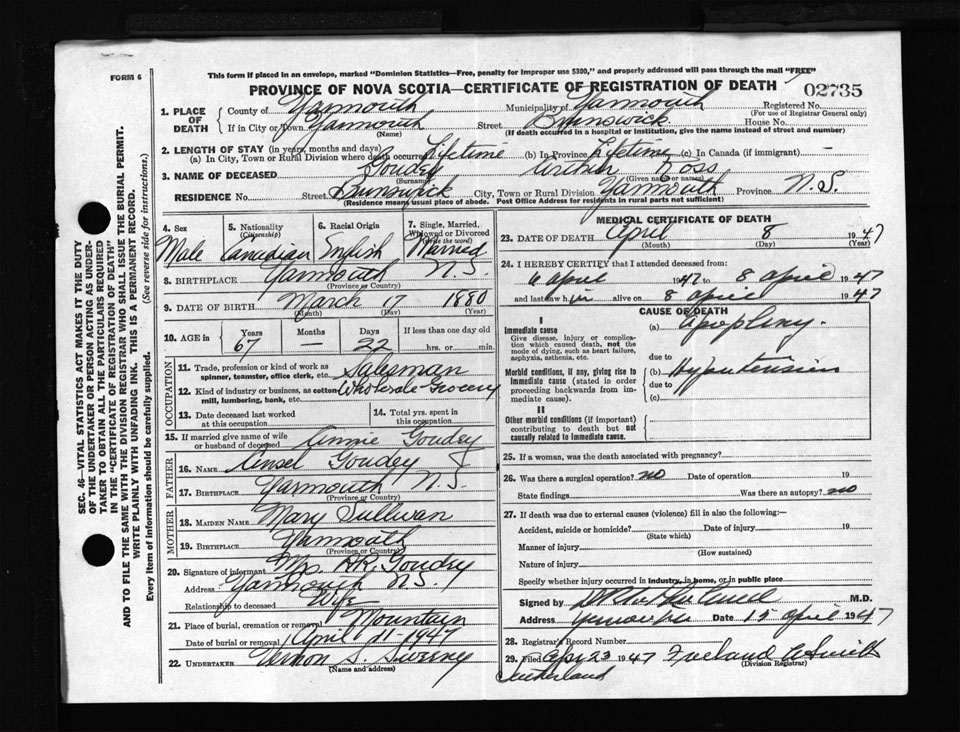 FORM 6
This form if placed in an envelope, marked "Dominion Statistics—Free, penalty for improper use $300," and properly addressed will pass through the mail "FREE"
PROVINCE OF NOVA SCOTIA—CERTIFICATE OF REGISTRATION OF DEATH
02735
1. PLACE OF DEATH
County of Yarmouth Municipality of Yarmouth Registered No.
(For use of Registrar General only)
If in City or Town Yarmouth Street Brunswick House No.
(Name) (If death occurred in a hospital or institution, give the name instead of street and number)
2. LENGTH OF STAY (in years, months and days)
(a) In City, Town or Rural Division where death occurred Lifetime (b) In Province Lifetime (c) In Canada (if immigrant)
3. NAME OF DECEASED Goudey Arthur Ross
(Surname) (Given name or names)
RESIDENCE No. Street Brunswick City, Town or Rural Division Yarmouth Province N.S.
(Residence means usual place of abode. Post Office Address for residents in rural parts not sufficient)
4. Sex 5. Nationality (Citizenship) 6. Racial Origin 7. Single, Married, Widowed or Divorced (write the word)
Male Canadian English Married
8. BIRTHPLACE Yarmouth N.S.
(Province or Country)
9. DATE OF BIRTH March 17 1880
(Month) (Day) (Year)
10. AGE in Years Months Days If less than one day old
67 — 22 hrs. or min.
OCCUPATION
11. Trade, profession or kind of work as spinner, teamster, office clerk, etc. Salesman
12. Kind of industry or business, as cotton mill, lumbering, bank, etc. Wholesale Grocery
13. Date deceased last worked at this occupation
14. Total yrs. spent in this occupation
15. If married give name of wife or husband of deceased Annie Goudey
FATHER
16. Name Ansel Goudey
17. Birthplace Yarmouth N.S.
(Province or Country)
MOTHER
18. Maiden Name Mary Sullivan
19. Birthplace Yarmouth
(Province or Country)
20. Signature of informant Mrs. Goudey
Address Yarmouth N.S.
Relationship to deceased Wife
21. Place of burial, cremation or removal Mountain
Date of burial or removal April 11-1947
22. UNDERTAKER Vernon S. Sweeny
(Name and address)
MEDICAL CERTIFICATE OF DEATH
23. DATE OF DEATH April 8 1947
(Month) (Day) (Year)
24. I HEREBY CERTIFY that I attended deceased from:
6 April 1947 to 8 April 1947
and last saw him alive on 8 April 1947
CAUSE OF DEATH
I
Immediate cause (a) apoplexy.
Give disease, injury or complication which caused death, not the mode of dying, such as heart failure, asphyxia, asthenia, etc.
due to
Morbid conditions, if any, giving rise to immediate cause (stated in order proceeding backwards from immediate cause).
(b) Hypertension
due to
(c)
II
Other morbid conditions (if important) contributing to death but not causally related to Immediate cause.
25. If a woman, was the death associated with pregnancy?
26. Was there a surgical operation? no Date of operation 19
State findings Was there an autopsy? no
27. If death was due to external causes (violence) fill in also the following:—
Accident, suicide or homicide? Date of injury 19
(State which)
Manner of injury
(How sustained)
Nature of injury
Specify whether injury occurred in industry, in home, or in public place
Signed by M.D.
Address Date 15 April 1947
28. Registrar's Record Number
29. Filed Apr 23 1947 Freeland Smith
(Division Registrar)
Sutherland
SEC. 46—VITAL STATISTICS ACT MAKES IT THE DUTY
OF THE UNDERTAKER OR PERSON ACTING AS UNDER-
TAKER TO OBTAIN ALL THE PARTICULARS REQUIRED
IN THE "CERTIFICATE OF REGISTRATION OF DEATH"
AND TO FILE THE SAME WITH THE DIVISION REGISTRAR WHO SHALL ISSUE THE BURIAL PERMIT.
WRITE PLAINLY WITH UNFADING INK. THIS IS A PERMANENT RECORD.
Every item of information should be carefully supplied. (See reverse side for instructions.)